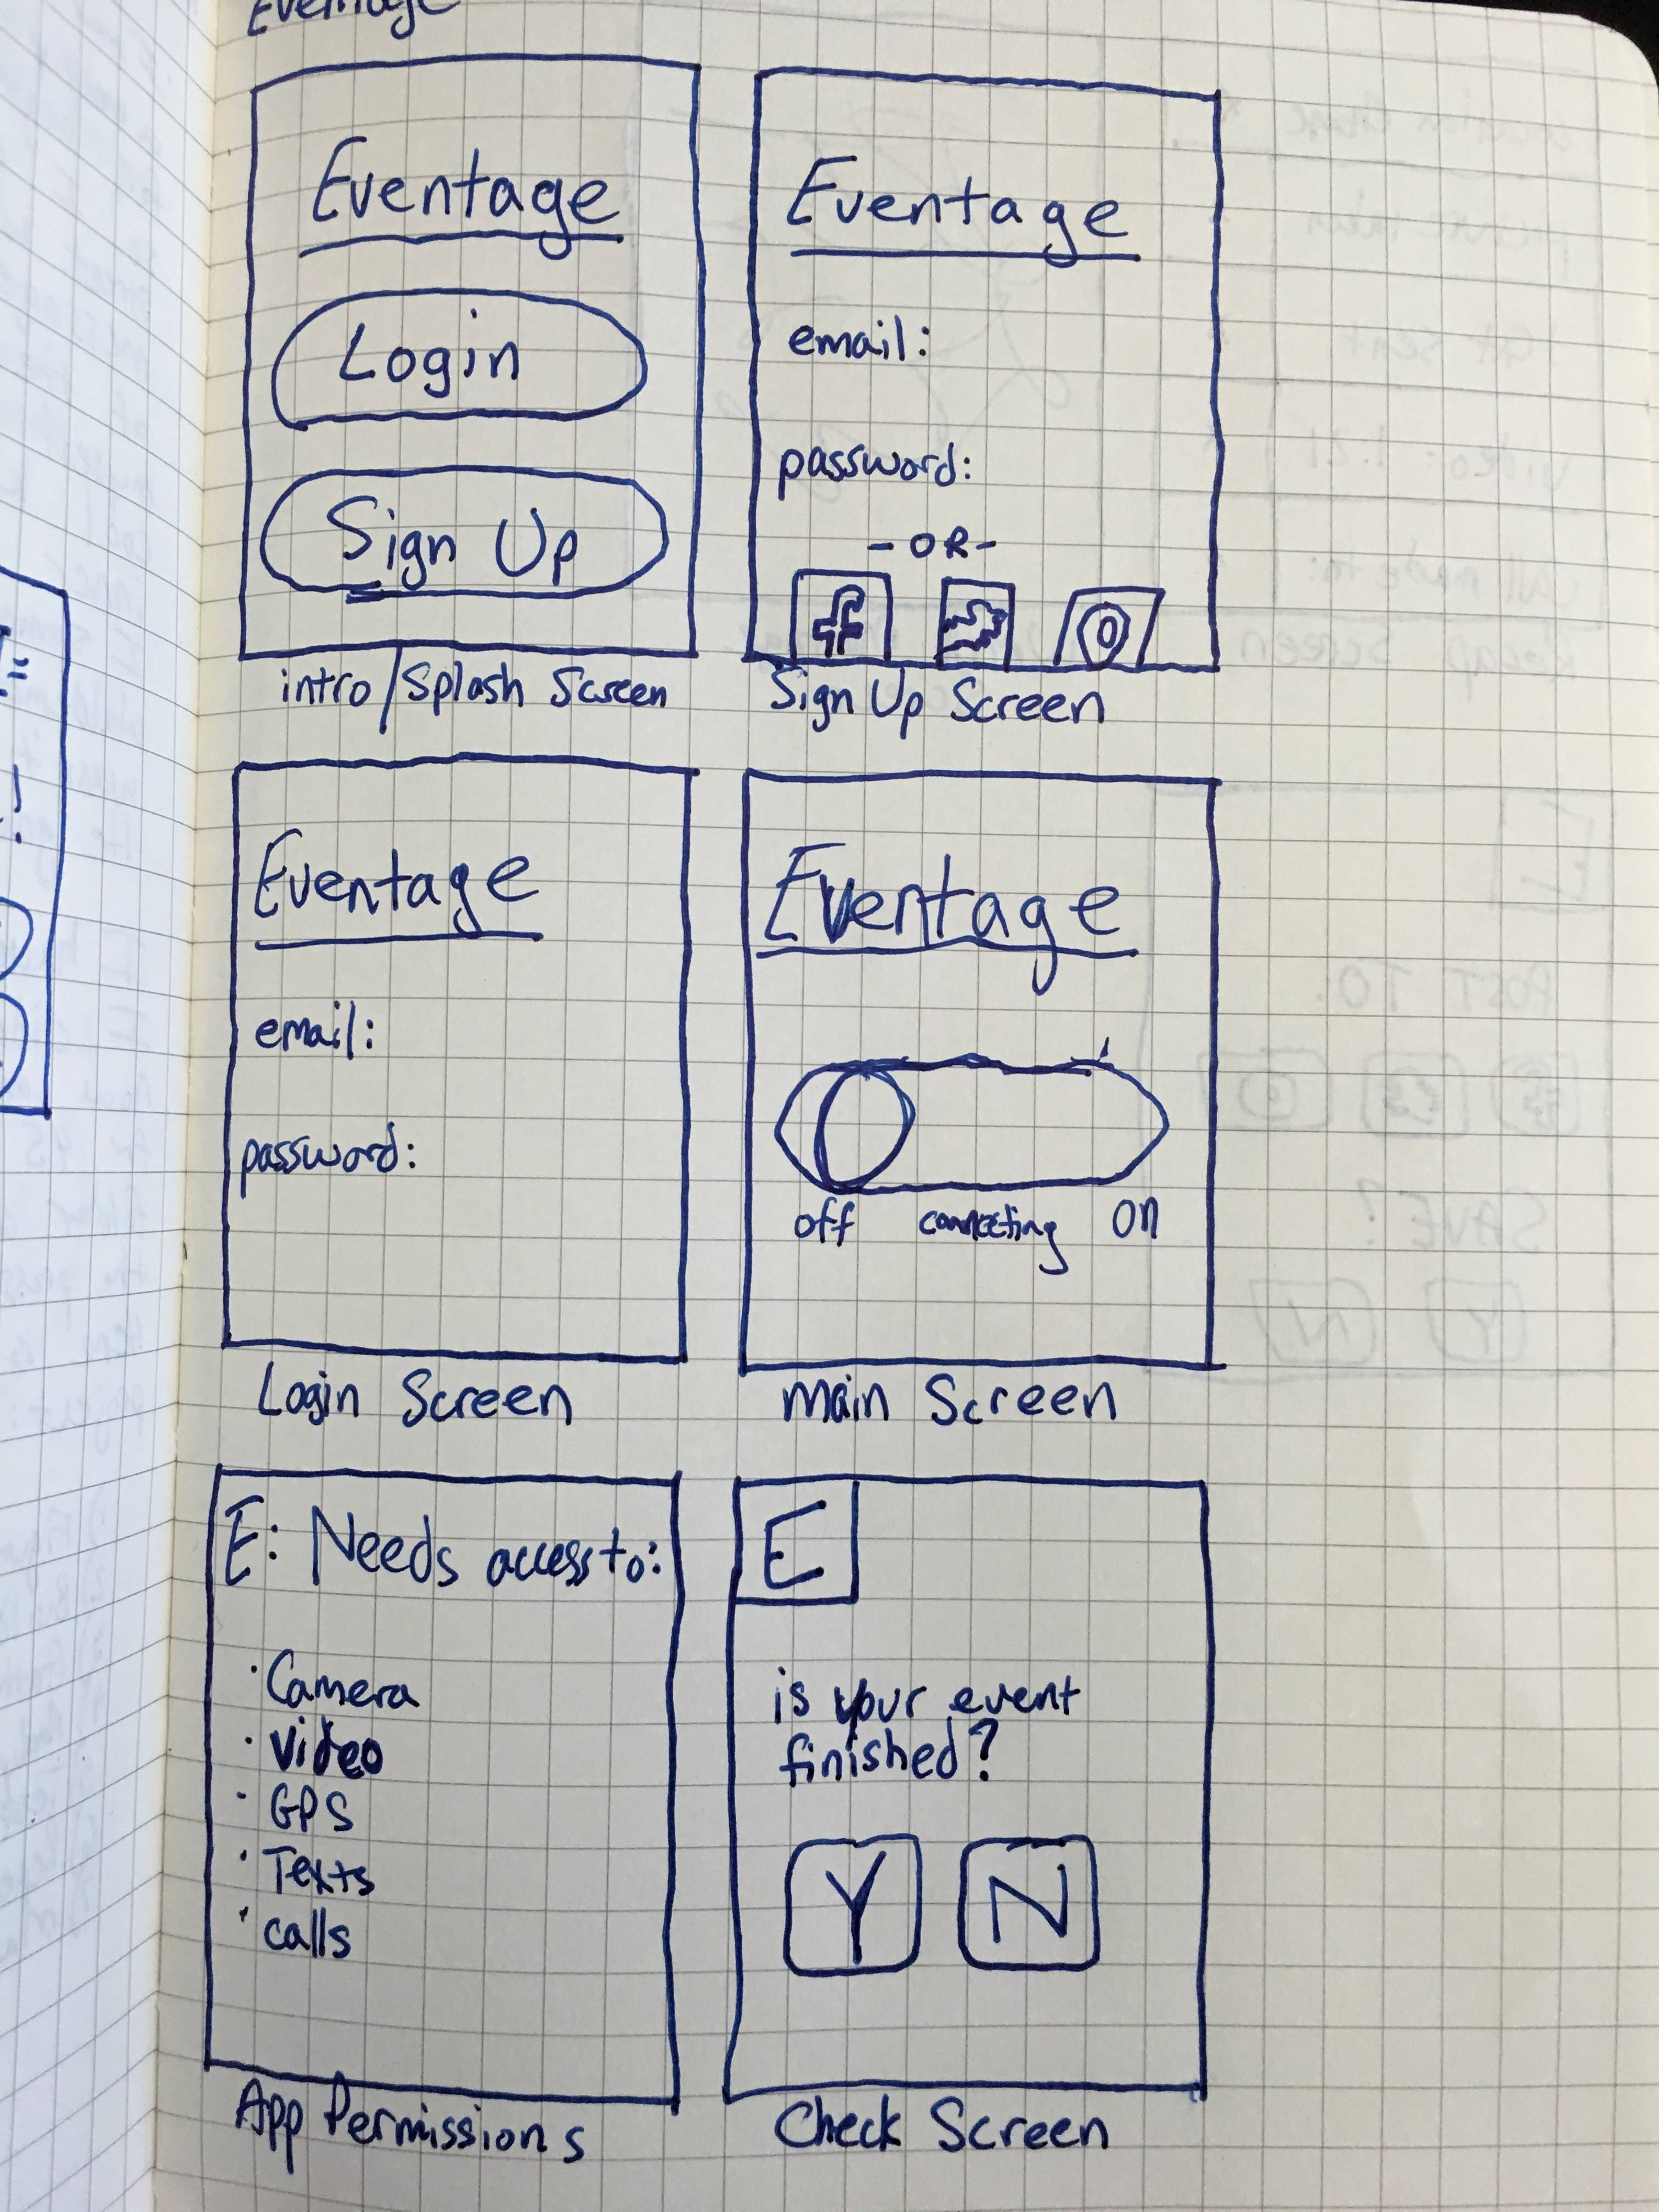 Eventage
Eventage
Login
Sign Up
intro/Splash Screen
Eventage
email:
password:
- OR -
f
Sign Up Screen
Eventage
email:
password:
Login Screen
Eventage
off connecting on
Main Screen
E: Needs access to:
· Camera
· Video
· GPS
· Texts
· calls
App Permissions
E
is your event
finished?
Y N
Check Screen
POST TO:
SAVE?
Y N